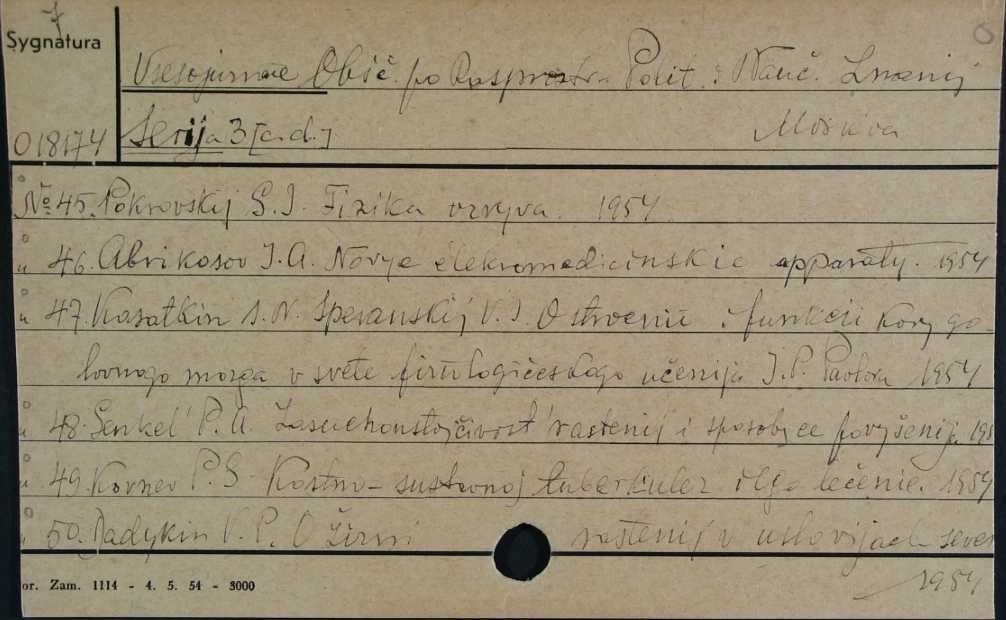 7
Sygnatura
Vsesojuznoe Obšč. po Rasprostr. Polit. i Nauč. Znanij
O18174 Serija 3 [c.d.] Moskva
№ 45. Pokrovskij G.I. Fizika vzryva. 1954
" 46. Abrikosov I.A. Novye elekromedicinskie apparaty. 1954
" 47. Kasatkin S.N. Speranskij V.S. O stroenii i funkcii kory go-
lovnogo mozga v svete fiziologičeskogo učenija I.P. Pavlova 1954
" 48. Genkel' P.A. Zasuchoustojčivost' rastenij i sposoby ee povyšenija 195
" 49. Kornev P.G. Kostno-sustavnoj tuberkulez i ego lečenie. 1954
" 50. Dadykin V.P. O žizni rastenij v uslovijach sever
or. Zam. 1114 - 4. 5. 54 - 3000
1954